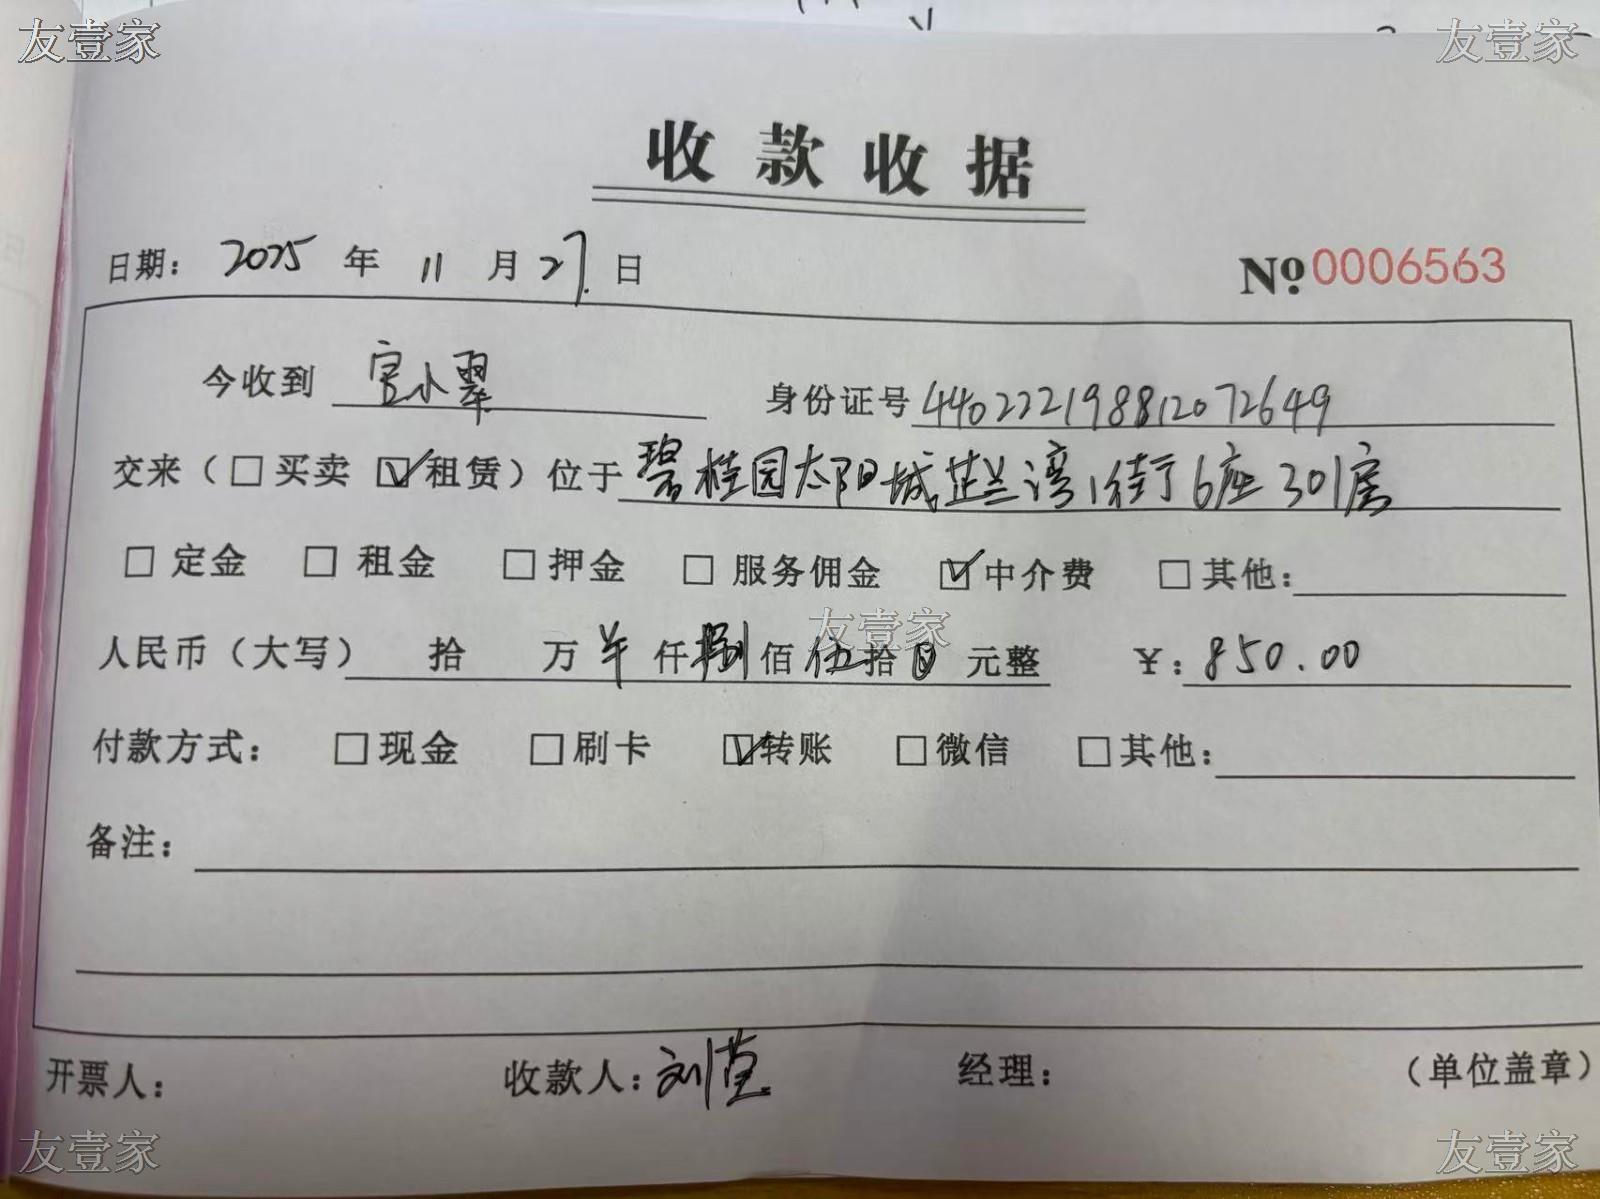 友壹家 友壹家
收款收据
日期： 2025 年 11 月 27 日 No 0006563
今收到 官小翠 身份证号 440222198812072649
交来（□ 买卖 ☑ 租赁）位于 碧桂园太阳城芷兰湾1街6座301房
□ 定金 □ 租金 □ 押金 □ 服务佣金 ☑ 中介费 □ 其他：
友壹家
人民币（大写） 拾 万 仟 捌 佰 伍 拾 元整 ¥：850.00
付款方式： □ 现金 □ 刷卡 ☑ 转账 □ 微信 □ 其他：
备注：
开票人： 收款人：刘 经理： （单位盖章）
友壹家 友壹家